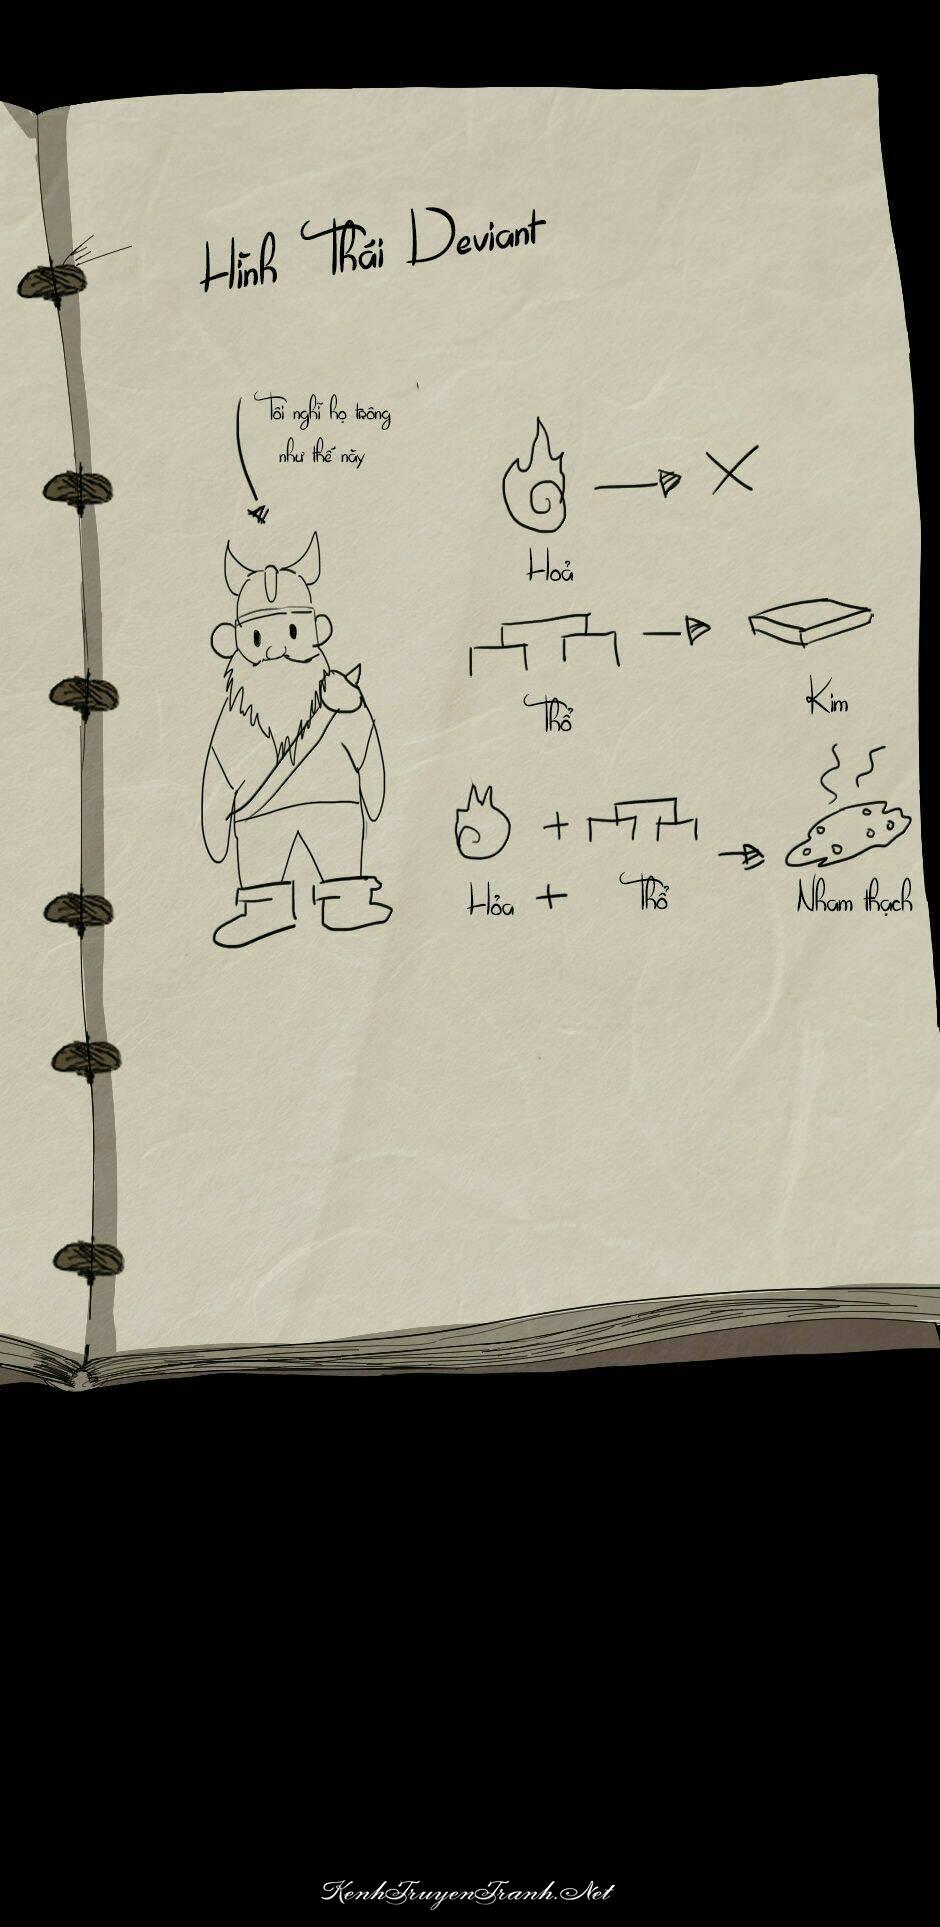 Hình Thái Deviant
Tôi nghĩ họ trông
như thế này
Hoả
Thổ
Kim
Hỏa + Thổ
Nham thạch
KenhTruyenTranh.Net